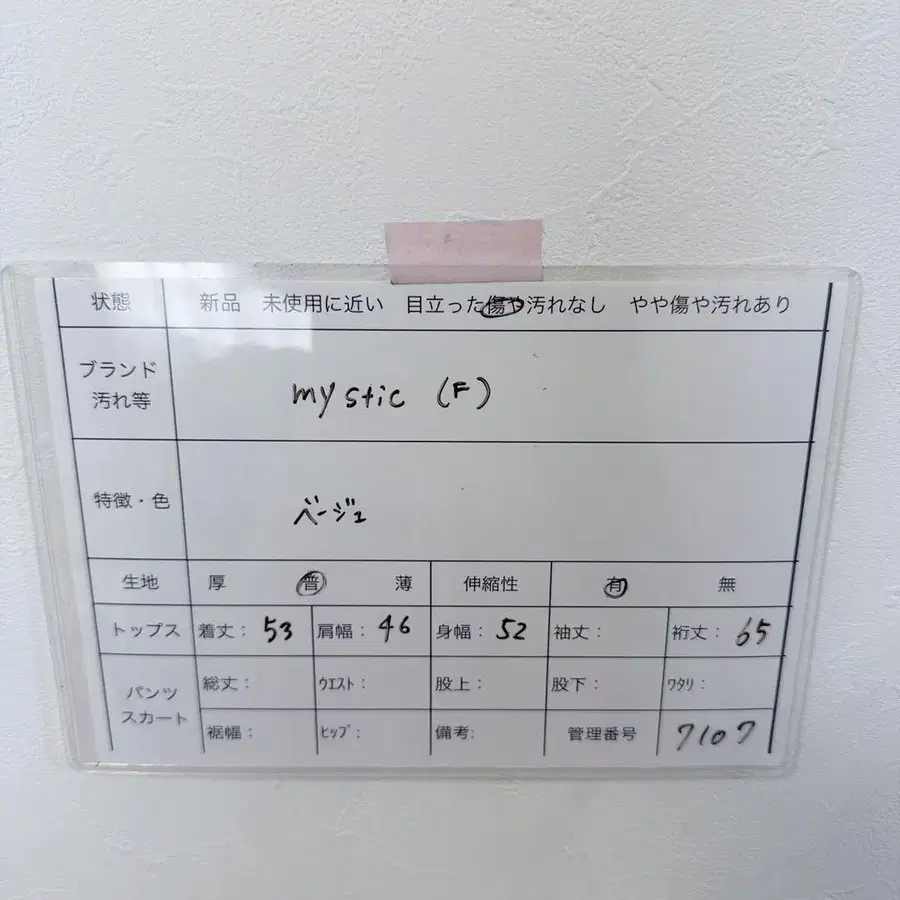 状態 新品 未使用に近い 目立った傷や汚れなし やや傷や汚れあり
ブランド
汚れ等
mystic (F)
特徴・色
ベージュ
生地 厚 普 薄 伸縮性 有 無
トップス 着丈: 53 肩幅: 46 身幅: 52 袖丈: 裄丈: 65
パンツ
スカート
総丈: ウエスト: 股上: 股下: ワタリ:
裾幅: ヒップ: 備考: 管理番号 7107